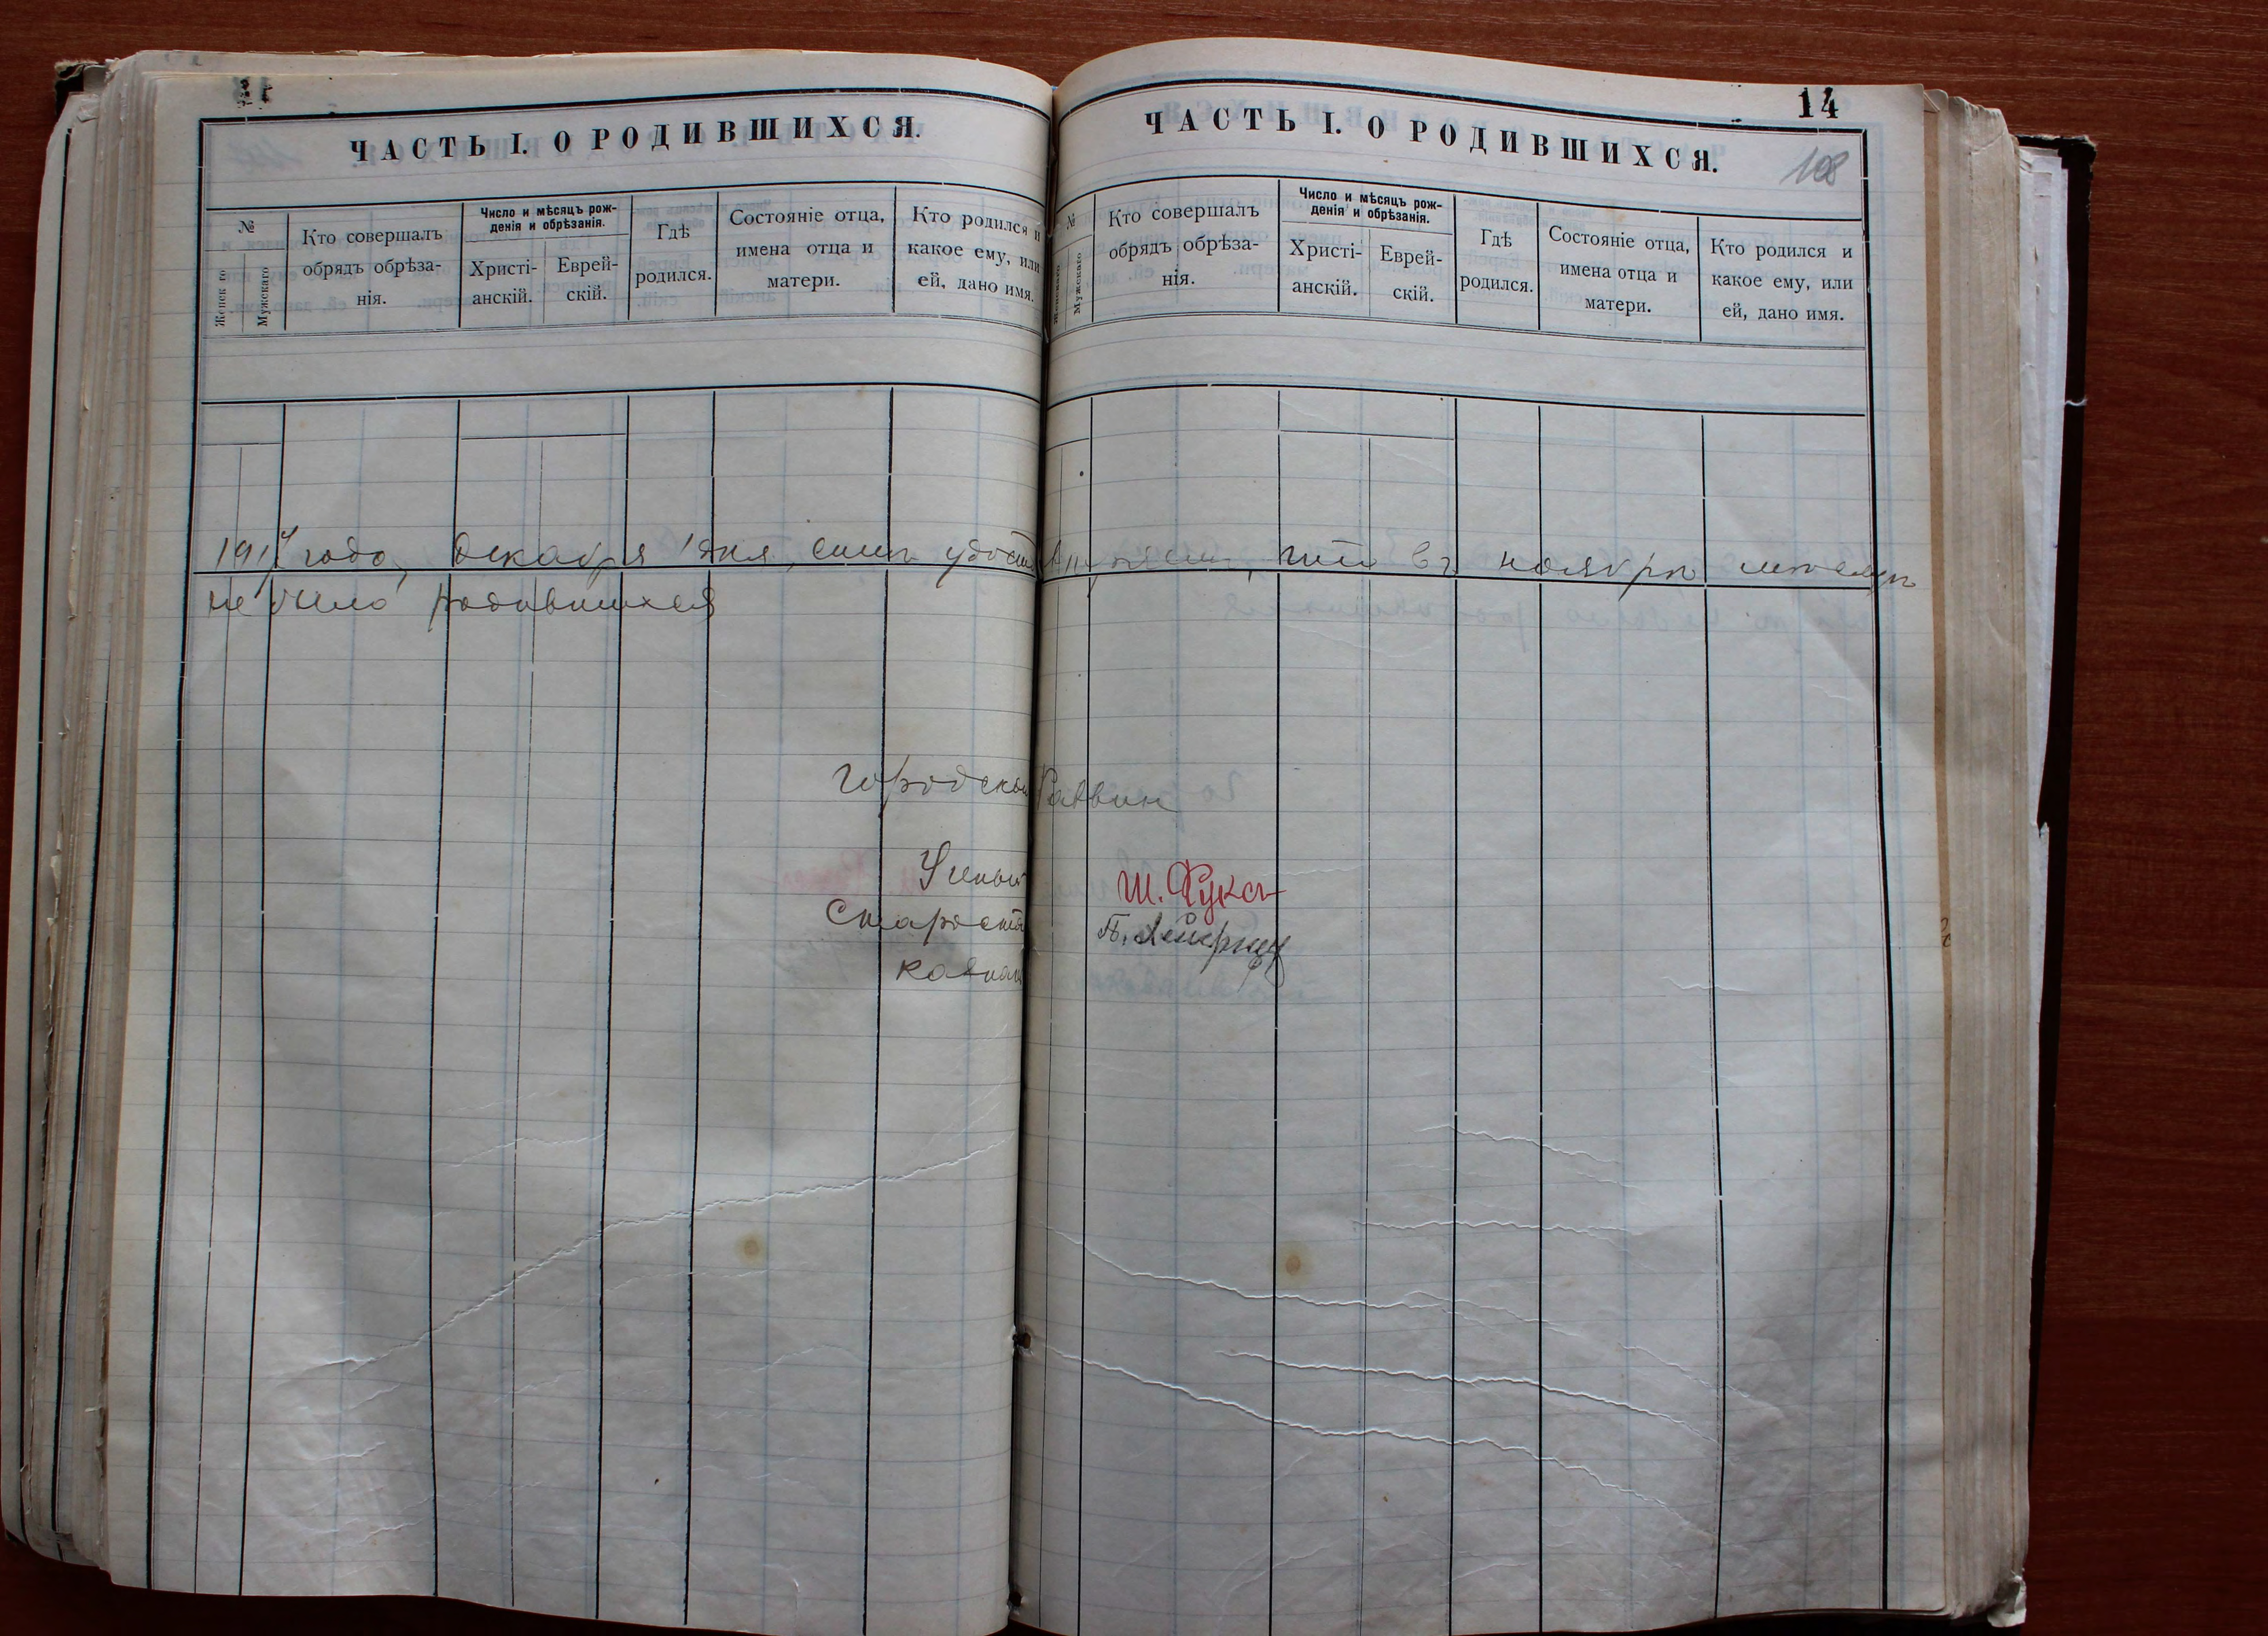 ЧАСТЬ I. О РОДИВШИХСЯ.
№
Женск го
Мужскаго
Кто совершалъ
обрядъ обрѣза-
нія.
Число и мѣсяцъ рож-
денія и обрѣзанія.
Христі-
анскій.
Еврей-
скій.
Гдѣ
родился.
Состояніе отца,
имена отца и
матери.
Кто родился и
какое ему, или
ей, дано имя.
14
108
ЧАСТЬ I. О РОДИВШИХСЯ.
№
Женскаго
Мужскаго
Кто совершалъ
обрядъ обрѣза-
нія.
Число и мѣсяцъ рож-
денія и обрѣзанія.
Христі-
анскій.
Еврей-
скій.
Гдѣ
родился.
Состояніе отца,
имена отца и
матери.
Кто родился и
какое ему, или
ей, дано имя.
года, декабря 1 дня, симъ удостовѣряемъ, что въ ноябрѣ мѣсяцѣ
не было родившихся
Городской Раввин
Ученый Ш. Фукс
Староста
Казнач